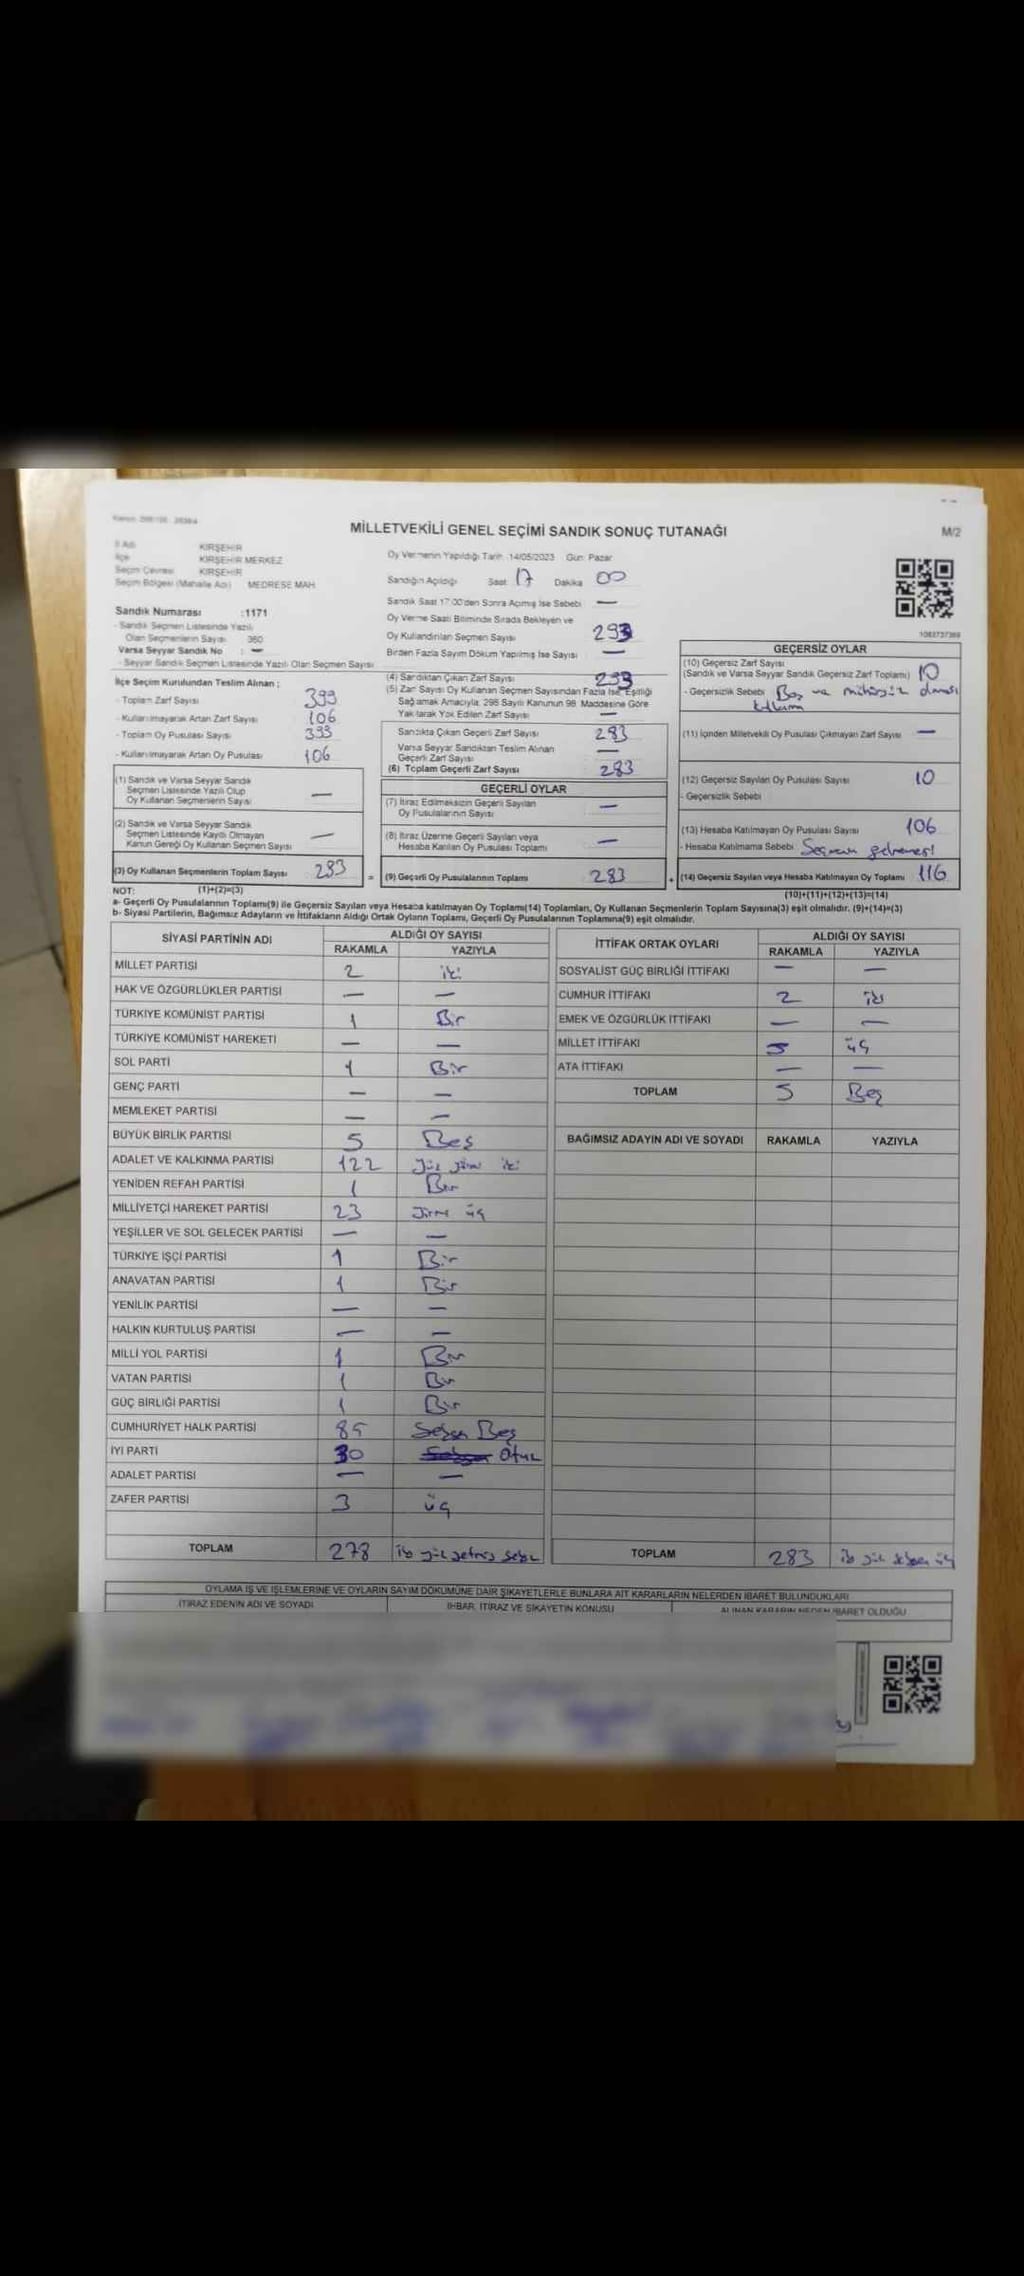 MİLLETVEKİLİ GENEL SEÇİMİ SANDIK SONUÇ TUTANAĞI
M/2
İl Adı KIRŞEHİR
İlçe KIRŞEHİR MERKEZ
Seçim Çevresi KIRŞEHİR
Seçim Bölgesi (Mahalle Adı) MEDRESE MAH
Oy Vermenin Yapıldığı Tarih 14/05/2023 Gün: Pazar
Sandığın Açıldığı Saat 17 Dakika 00
Sandık Saat 17:00'den Sonra Açılmış İse Sebebi —
Oy Verme Saati Bitiminde Sırada Bekleyen ve
Oy Kullandırılan Seçmen Sayısı 293
Birden Fazla Sayım Döküm Yapılmış İse Sayısı —
Sandık Numarası :1171
- Sandık Seçmen Listesinde Yazılı
Olan Seçmenlerin Sayısı 360
Varsa Seyyar Sandık No : —
- Seyyar Sandık Seçmen Listesinde Yazılı Olan Seçmen Sayısı
İlçe Seçim Kurulundan Teslim Alınan ;
- Toplam Zarf Sayısı 399
- Kullanılmayarak Artan Zarf Sayısı 106
- Toplam Oy Pusulası Sayısı 399
- Kullanılmayarak Artan Oy Pusulası 106
(1) Sandık ve Varsa Seyyar Sandık
Seçmen Listesinde Yazılı Olup
Oy Kullanan Seçmenlerin Sayısı —
(2) Sandık ve Varsa Seyyar Sandık
Seçmen Listesinde Kayıtlı Olmayan
Kanun Gereği Oy Kullanan Seçmen Sayısı —
(3) Oy Kullanan Seçmenlerin Toplam Sayısı 293
(4) Sandıktan Çıkan Zarf Sayısı 293
(5) Zarf Sayısı Oy Kullanan Seçmen Sayısından Fazla İse, Eşitliği
Sağlamak Amacıyla, 298 Sayılı Kanunun 98. Maddesine Göre
Yakılarak Yok Edilen Zarf Sayısı —
Sandıkta Çıkan Geçerli Zarf Sayısı 283
Varsa Seyyar Sandıktan Teslim Alınan
Geçerli Zarf Sayısı —
(6) Toplam Geçerli Zarf Sayısı 283
GEÇERLİ OYLAR
(7) İtiraz Edilmeksizin Geçerli Sayılan
Oy Pusulalarının Sayısı —
(8) İtiraz Üzerine Geçerli Sayılan veya
Hesaba Katılan Oy Pusulası Toplamı —
= (9) Geçerli Oy Pusulalarının Toplamı 283
1083737369
GEÇERSİZ OYLAR
(10) Geçersiz Zarf Sayısı
(Sandık ve Varsa Seyyar Sandık Geçersiz Zarf Toplamı) 10
- Geçersizlik Sebebi Boş ve mühürsüz olması
(11) İçinden Milletvekili Oy Pusulası Çıkmayan Zarf Sayısı —
(12) Geçersiz Sayılan Oy Pusulası Sayısı 10
- Geçersizlik Sebebi
(13) Hesaba Katılmayan Oy Pusulası Sayısı 106
- Hesaba Katılmama Sebebi Seçmen gelmemesi
+ (14) Geçersiz Sayılan veya Hesaba Katılmayan Oy Toplamı 116
NOT: (1)+(2)=(3)
(10)+(11)+(12)+(13)=(14)
a- Geçerli Oy Pusulalarının Toplamı(9) ile Geçersiz Sayılan veya Hesaba katılmayan Oy Toplamı(14) Toplamları, Oy Kullanan Seçmenlerin Toplam Sayısına(3) eşit olmalıdır. (9)+(14)=(3)
b- Siyasi Partilerin, Bağımsız Adayların ve İttifakların Aldığı Ortak Oyların Toplamı, Geçerli Oy Pusulalarının Toplamına(9) eşit olmalıdır.
SİYASİ PARTİNİN ADI ALDIĞI OY SAYISI
RAKAMLA YAZIYLA
MİLLET PARTİSİ 2 iki
HAK VE ÖZGÜRLÜKLER PARTİSİ — —
TÜRKİYE KOMÜNİST PARTİSİ 1 Bir
TÜRKİYE KOMÜNİST HAREKETİ — —
SOL PARTİ 1 Bir
GENÇ PARTİ — —
MEMLEKET PARTİSİ — —
BÜYÜK BİRLİK PARTİSİ 5 Beş
ADALET VE KALKINMA PARTİSİ 122 yüz yirmi iki
YENİDEN REFAH PARTİSİ 1 Bir
MİLLİYETÇİ HAREKET PARTİSİ 23 yirmi üç
YEŞİLLER VE SOL GELECEK PARTİSİ — —
TÜRKİYE İŞÇİ PARTİSİ 1 Bir
ANAVATAN PARTİSİ 1 Bir
YENİLİK PARTİSİ — —
HALKIN KURTULUŞ PARTİSİ — —
MİLLİ YOL PARTİSİ 1 Bir
VATAN PARTİSİ 1 Bir
GÜÇ BİRLİĞİ PARTİSİ 1 Bir
CUMHURİYET HALK PARTİSİ 85 Seksen Beş
İYİ PARTİ 30 Otuz
ADALET PARTİSİ — —
ZAFER PARTİSİ 3 üç
TOPLAM 278 iki yüz yetmiş sekiz
İTTİFAK ORTAK OYLARI ALDIĞI OY SAYISI
RAKAMLA YAZIYLA
SOSYALİST GÜÇ BİRLİĞİ İTTİFAKI — —
CUMHUR İTTİFAKI 2 iki
EMEK VE ÖZGÜRLÜK İTTİFAKI — —
MİLLET İTTİFAKI 3 üç
ATA İTTİFAKI — —
TOPLAM 5 Beş
BAĞIMSIZ ADAYIN ADI VE SOYADI RAKAMLA YAZIYLA
TOPLAM 283 iki yüz seksen üç
OYLAMA İŞ VE İŞLEMLERİNE VE OYLARIN SAYIM DÖKÜMÜNE DAİR ŞİKAYETLERLE BUNLARA AİT KARARLARIN NELERDEN İBARET BULUNDUKLARI
İTİRAZ EDENİN ADI VE SOYADI İHBAR, İTİRAZ VE ŞİKAYETİN KONUSU ALINAN KARARIN NEDEN İBARET OLDUĞU